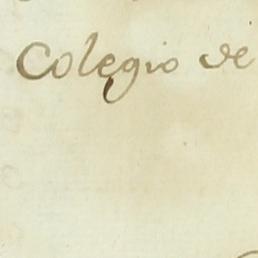 Colegio de